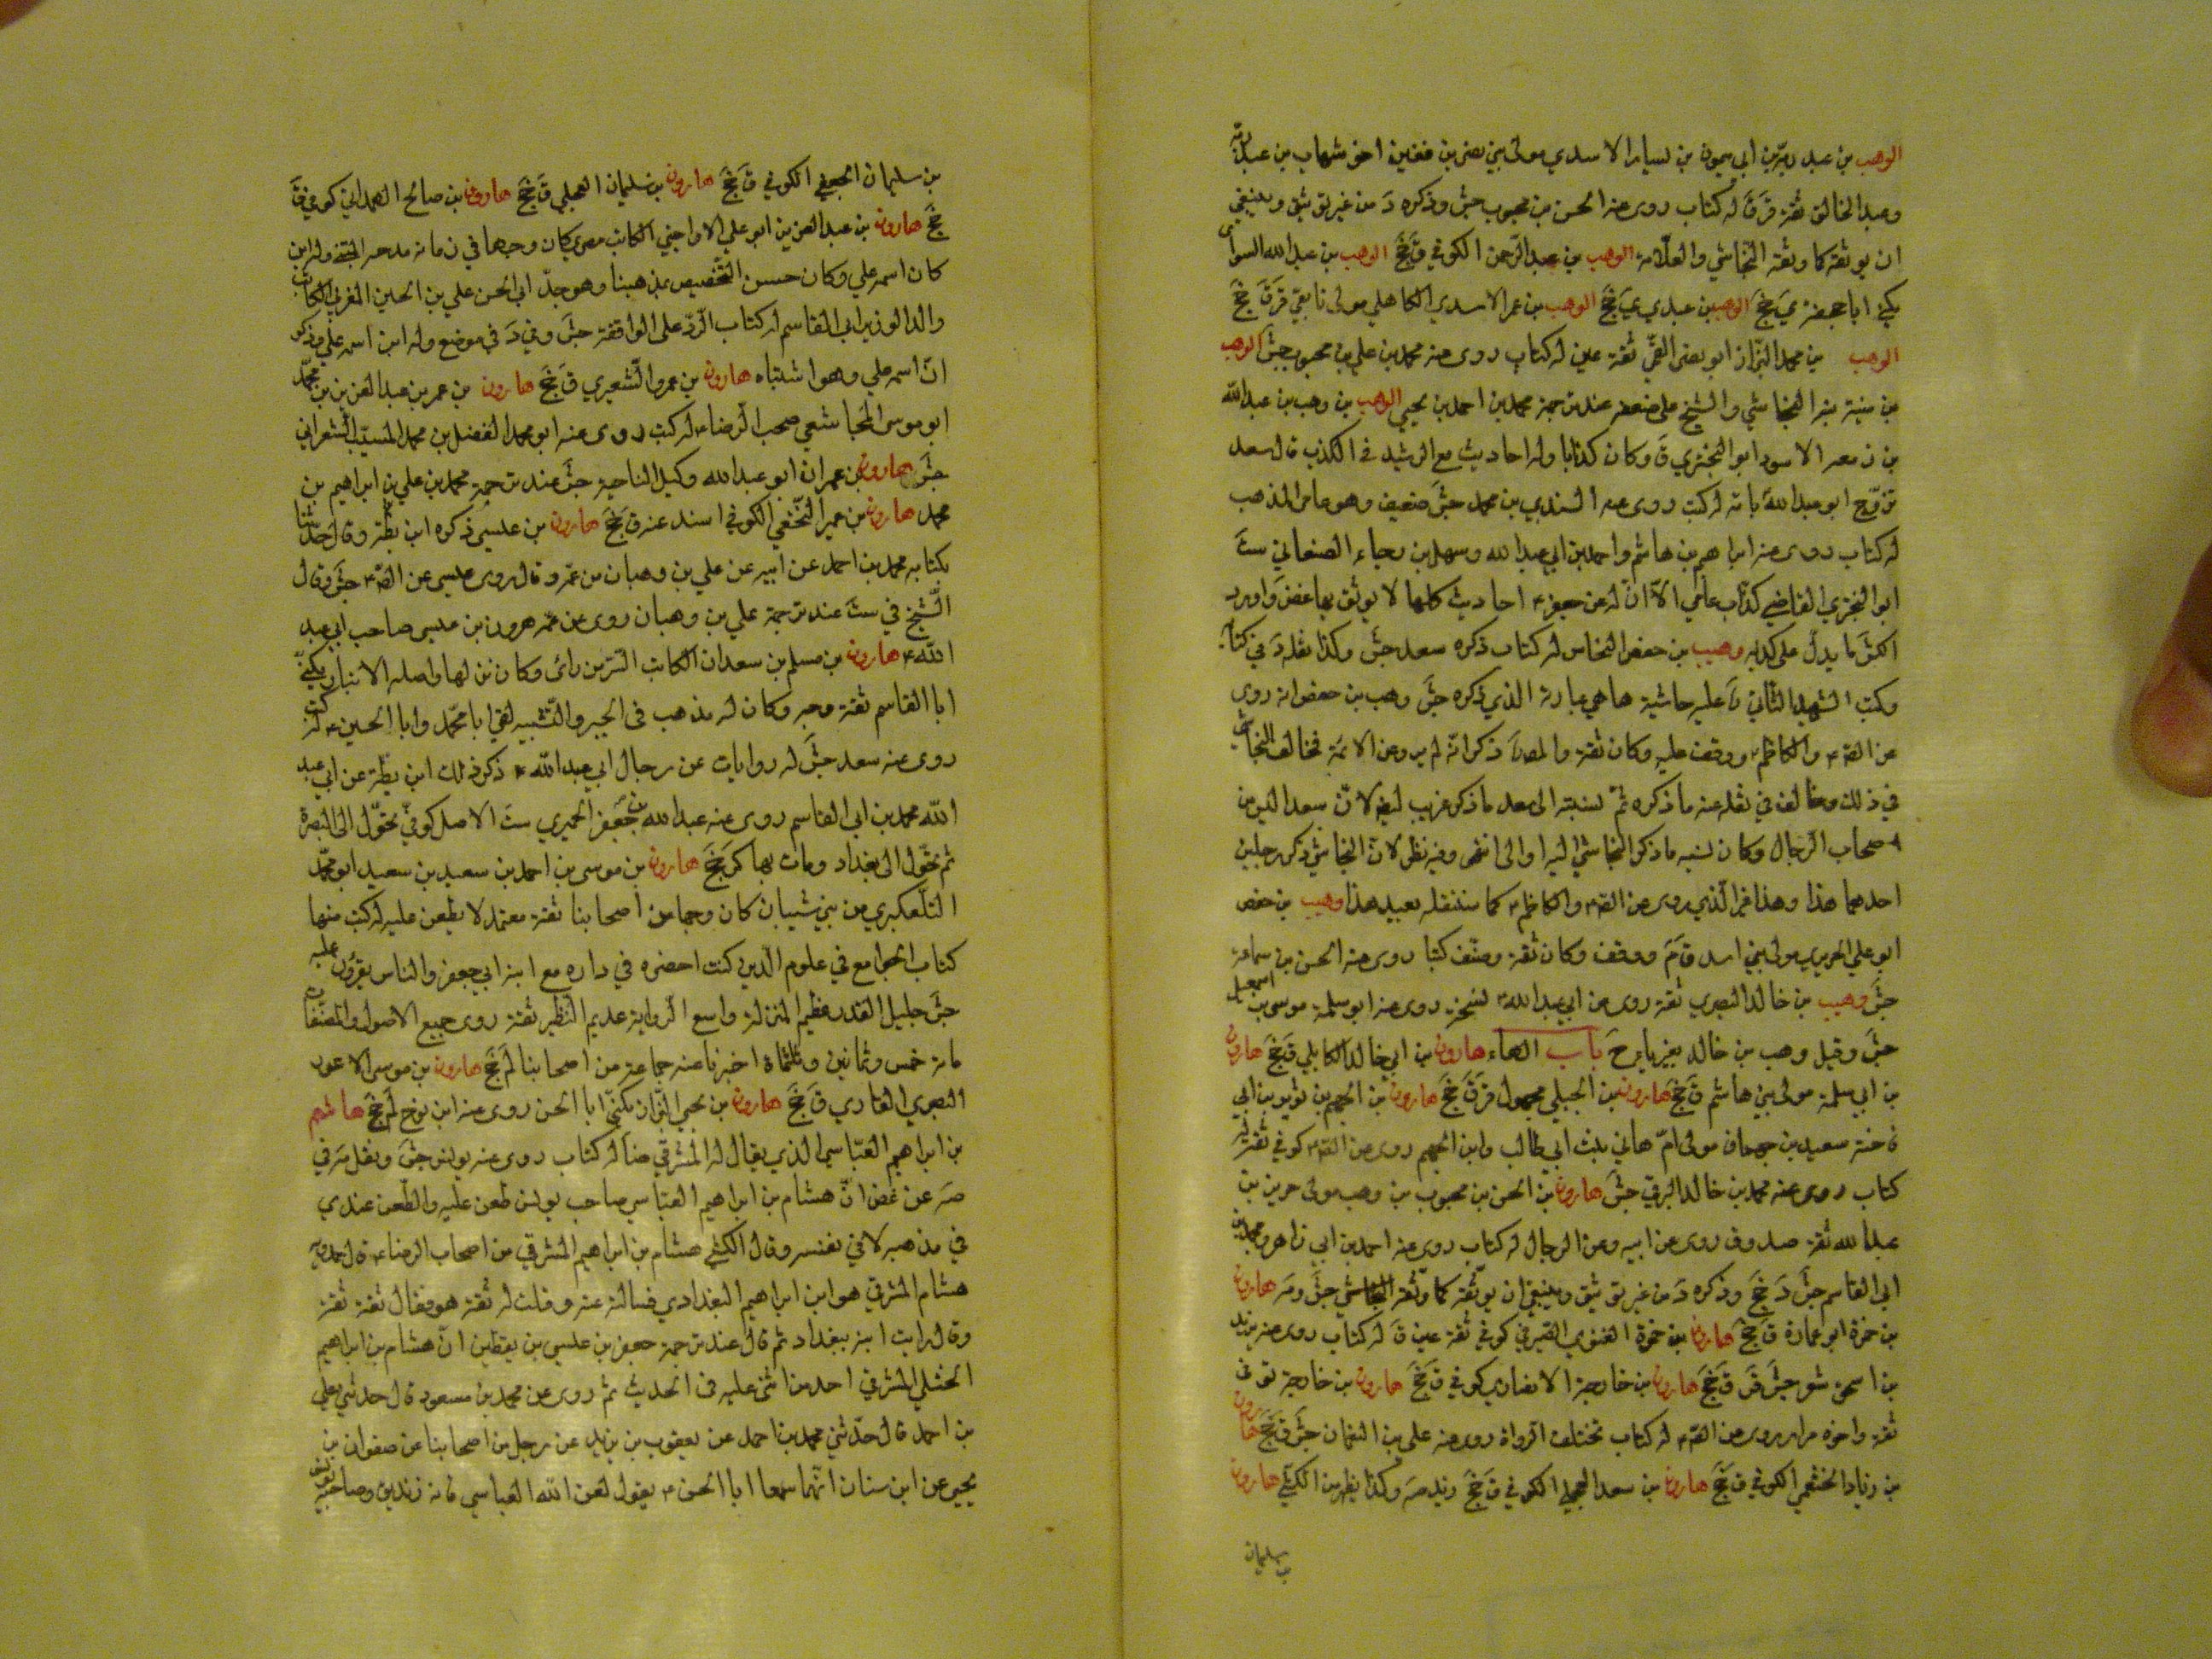 الوهب بن عبد ربه بن ابي ميمون بن يسار الاسدي مولى بني نصر بن قعين اخو شهاب بن عبد ربه
وعبد الخالق ثقة قر ق له كتاب روى عنه الحسن بن محبوب جش وذكره د من غير توثيق وينبغي
ان يوثقه كما وثقه النجاشي والعلامة الوهب بن عبد الرحمن الكوفي ق جخ الوهب بن عبد الله السوائي
يكنى ابا جحيفة ي جخ الوهب بن عبدي ي جخ الوهب بن عمر الاسدي الكاهلي مولى تابعي قر ق جخ
الوهب بن محمد البزاز ابو نصر القمي ثقة عين له كتاب روى عنه محمد بن علي بن محبوب جش الوهب
بن منبه النجاشي والشيخ على ضعفه عند ترجمة محمد بن احمد بن يحيى الوهب بن وهب بن عبد الله
بن زمعه الاسود ابو البختري ق وكان كذابا وله احاديث مع الرشيد في الكذب قال سعد
تزوج ابو عبد الله بامه له كتب روى عنه السندي بن محمد جش ضعيف وهو عامي المذهب
له كتاب روى عنه ابراهيم بن هاشم واحمد بن ابي عبد الله وسهل بن رجاء الصنعاني ست
ابو البختري القاضي كذاب عامي الا ان له عن جعفر ع احاديث كلها لا يوثق بها غض واورد
الكش ما يدل على كذبه وهيب بن حفص النخاس له كتاب ذكره سعد جش وكذا نقله د في كتابه
وكتب الشهيد الثاني ره عليه حاشية ها هي عبارة الذي ذكره جش وهب بن حفص انه روى
عن الصـ ع والكاظم ع ووقف عليه وكان ثقة والمص ذكر انه لم يرو عن الائمة فخالف النجاشي
في ذلك وخالف في نقله عنه ما ذكره ثم نسبته الى سعد ما ذكر غريب ايضا لان سعد الدين من
اصحاب الرجال وكان نسبه ما ذكر النجاشي اليه اولى انتهى وفيه نظر لان النجاشي ذكر رجلين
احدهما هذا وهذا غير الذي روى عن الصـ ع والكاظم ع كما سننقله بعيد هذا وهيب بن حفص
ابو علي الجريري مولى بني اسد ق م ووقف وكان ثقة وصنف كتبا روى عنه الحسن بن سماعة
جش وهيب بن خالد البصري ثقة روى عن ابي عبد الله ع نسخة روى عنه ابو سلمة موسى بن اسمعيل
جش وقيل وهب بن خالد بغير ياء ح باب الهاء هارون بن ابي خالد الكابلي ق جخ هارون
بن ابي سلمة مولى بني هاشم ق جخ هارون بن الجبلي مجهول قر ق جخ هارون بن الجهم بن ثوير بن ابي
فاختة سعيد بن جهمان مولى ام هاني بنت ابي طالب وابن الجهم روى عن الصـ ع كوفي ثقة له
كتاب روى عنه محمد بن خالد البرقي جش هارون بن الحسن بن محبوب بن وهب مولى جرير بن
عبد الله ثقة صدوق روى عن ابيه وعن الرجال له كتاب روى عنه احمد بن ابي زاهر ومحمد بن
ابي القاسم جش د جخ وذكره د من غير توثيق وينبغي ان يوثقه كما وثقه النجاشي جش ومر هارون
بن حمزة ابو عمارة ق جخ هارون بن حمزة الغنوي الصيرفي كوفي ثقة عين ق له كتاب روى عنه يزيد
بن اسحق شعر جش قر ق جخ هارون بن خارجة الانصاري كوفي ق جخ هارون بن خارجة كوفي
ثقة واخوه مراد روى عن الصـ ع له كتاب تختلف الرواة روى عنه علي بن النعمان جش ق جخ هارون
بن زياد الخثعمي الكوفي ق جخ هارون بن سعد العجلي الكوفي ق جخ زيدي صه وكذا يظهر من الكشي هارون
بن سليمان
بن سليمان الجعفي الكوفي ق جخ هارون بن سليمان العجلي ق جخ هارون بن صالح الهمداني كوفي ق
جخ هارون بن عبد العزيز ابو علي الاراجني الكاتب مصري كان وجها في زمانه مدحه المتنبي وله ابن
كان اسمه علي وكان حسن التخصيص بمذهبنا وهو جد ابي الحسن علي بن الحسين المغربي الكاتب
والد الوزير ابي القاسم له كتاب الرد على الواقفة جش وفي د في موضع وله ابن اسمه علي وذكر
ان اسمه علي وهو اشتباه هارون بن عمرو الشعيري ق جخ هارون بن عمر بن عبد العزيز بن محمد
ابو موسى المجاشعي صحب الرضا ع له كتب روى عنه ابو محمد الفضل بن محمد المسيب الشعراني
جش هارون بن عمران ابو عبد الله وكيل الناحية جش عند ترجمة محمد بن علي بن ابراهيم بن
محمد هارون بن عمير النخعي الكوفي اسند عنه ق جخ هارون بن عيسى ذكره ابن بطة وقال حدثنا
بكتابه محمد بن احمد عن ابيه عن علي بن وهبان عن عمه وقال روى عيسى عن الصـ ع جش وقال
الشيخ في ست عند ترجمة علي بن وهبان روى عن عمه هرون بن عيسى صاحب ابي عبد
الله ع هارون بن مسلم بن سعدان الكاتب السر من رائى وكان نزلها واصله الانبار يكنى
ابا القاسم ثقة وجه وكان له مذهب في الجبر والتشبيه لقي ابا محمد وابا الحسن ع له كتب
روى عنه سعد جش له روايات عن رجال ابي عبد الله ع ذكر ذلك ابن بطة عن ابي عبد
الله محمد بن ابي القاسم روى عنه عبد الله بن جعفر الحميري ست الاصل كوفي تحول الى البصرة
ثم تحول الى بغداد ومات بها كر جخ هارون بن موسى بن احمد بن سعيد بن سعيد ابو محمد
التلعكبري من بني شيبان كان وجها من اصحابنا ثقة معتمد لا يطعن عليه له كتب منها
كتاب الجوامع في علوم الدين كنت احضره في داره مع ابنه ابي جعفر والناس يقرؤن عليه
جش جليل القدر عظيم المنزلة واسع الرواية عديم النظير ثقة روى جميع الاصول والمصنفات
مات خمس وثمانين وثلثمائة اخبرنا عنه جماعة من اصحابنا لم جخ هارون بن موسى الاعور
البصري القاري ق جخ هارون بن يحيى البزاز يكنى ابا الحسن روى عنه ابن نوح لم جخ هاشم
بن ابراهيم العباسي الذي يقال له المشرقي ضا له كتاب روى عنه يونس جش ونقل مر في
صه عن غض ان هشام بن ابراهيم العباسي صاحب يونس طعن عليه والطعن عندي
في مذهبه لا في نفسه وقال الكشي هشام بن ابراهيم المشرقي من اصحاب الرضا ع قال حمدويه
هشام المشرقي هو ابن ابراهيم البغدادي فسالته عنه وقلت له ثقة هو فقال ثقة ثقة
وقال رايت ابنه ببغداد ثم قال عند ترجمة جعفر بن عيسى بن يقطين ان هشام بن ابراهيم
الختلي المشرقي احد من اثنى عليه في الحديث ثم روى عن محمد بن مسعود قال حدثني علي
بن احمد قال حدثني محمد بن احمد عن يعقوب بن يزيد عن رجل من اصحابنا عن صفوان بن
يحيى عن ابن سنان انهما سمعا ابا الحسن ع يقول لعن الله العباسي فانه زنديق وصاحبه يونس